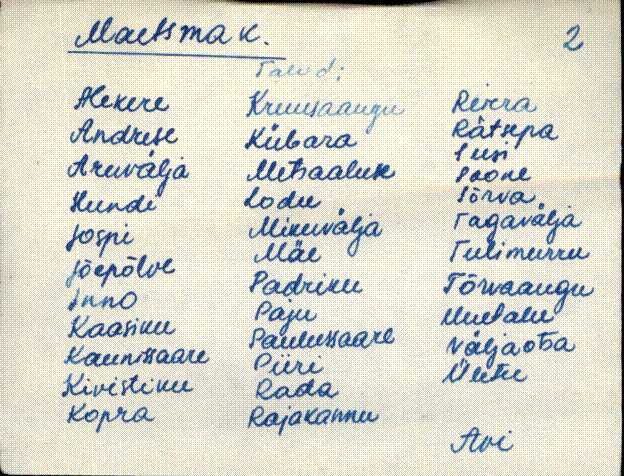 Maetsma k.
2
Talud:
Alekere
Andrese
Aruvälja
Hundi
Jospi
Jõepõlve
Inno
Kaasiku
Kaunissaare
Kivistiku
Kopra
Kruusaaugu
Kübara
Metsaaluse
Lodu
Mikuvälja
Mäe
Padriku
Paju
Paulussaare
Piiri
Rada
Rajakannu
Rätsepa
Susi
Soone
Sõrva
Tagavälja
Tulimurru
Tõrvaaugu
Uuetalu
Väljaotsa
Avi